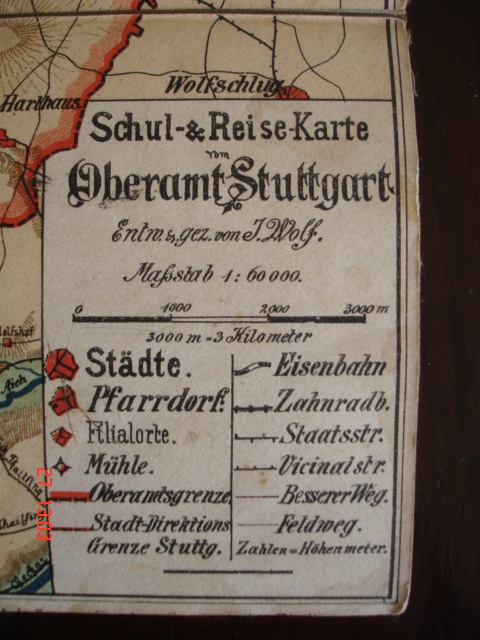 Wolfschlug.
Harthaus.
Schul-&Reise-Karte
vom
Oberamt Stuttgart
Entw. & gez. von J. Wolf.
Maßstab 1:60000.
0 1000 2000 3000 m
3000 m = 3 Kilometer
Städte.
Pfarrdorf.
Filialorte.
Mühle.
Oberamtsgrenze.
Stadt-Direktions
Grenze Stuttg.
Eisenbahn
Zahnradb.
Staatsstr.
Vicinalstr.
Besserer Weg.
Feldweg.
Zahlen = Höhenmeter.
Aich